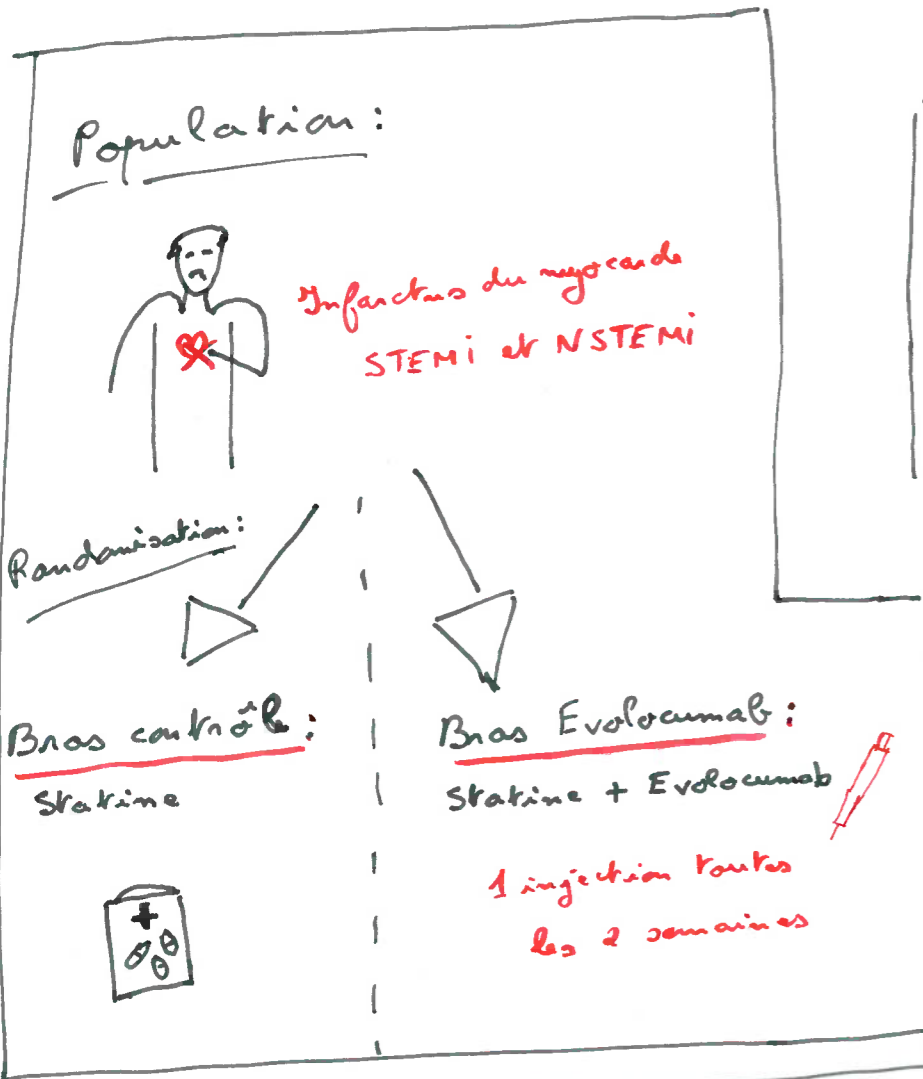 Population :
Infarctus du myocarde
STEMi et NSTEMi
Randomisation :
Bras contrôle :
Statine
Bras Evolocumab :
Statine + Evolocumab
1 injection toutes
les 2 semaines